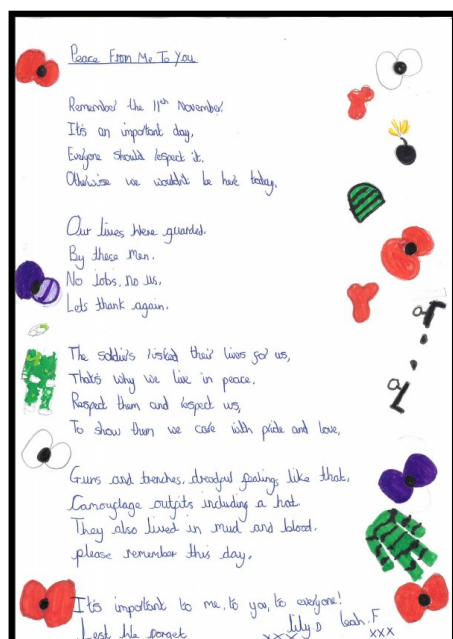 Peace From Me To You
Remember the 11th November
It's an important day,
Everyone should respect it,
Otherwise we wouldn't be here today.
Our lives were guarded.
By these men.
No Jobs, no us,
Lets thank again.
The soldiers risked their lives for us,
That's why we live in peace.
Respect them and respect us,
To show them we care with pride and love,
Guns and trenches, dreadful feelings like that,
Camouflage outfits including a hat.
They also lived in mud and blood.
please remember this day,
It's important to me, to you, to everyone!
Lest We forget
Lily D Leah. F
xxx xxx